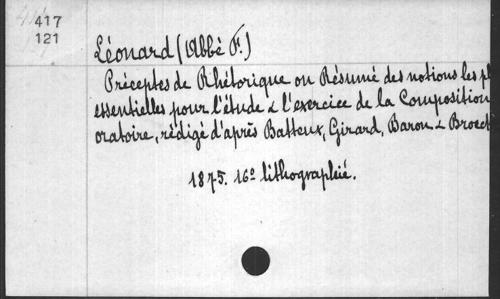 417
121
Léonard (Abbé F.)
Préceptes de Rhétorique ou Résumé des notions les pl
essentielles pour l'étude & l'exercice de la Composition
oratoire, rédigé d'après Batteux, Girard, Baron & Broect
1875. 16° lithographié.